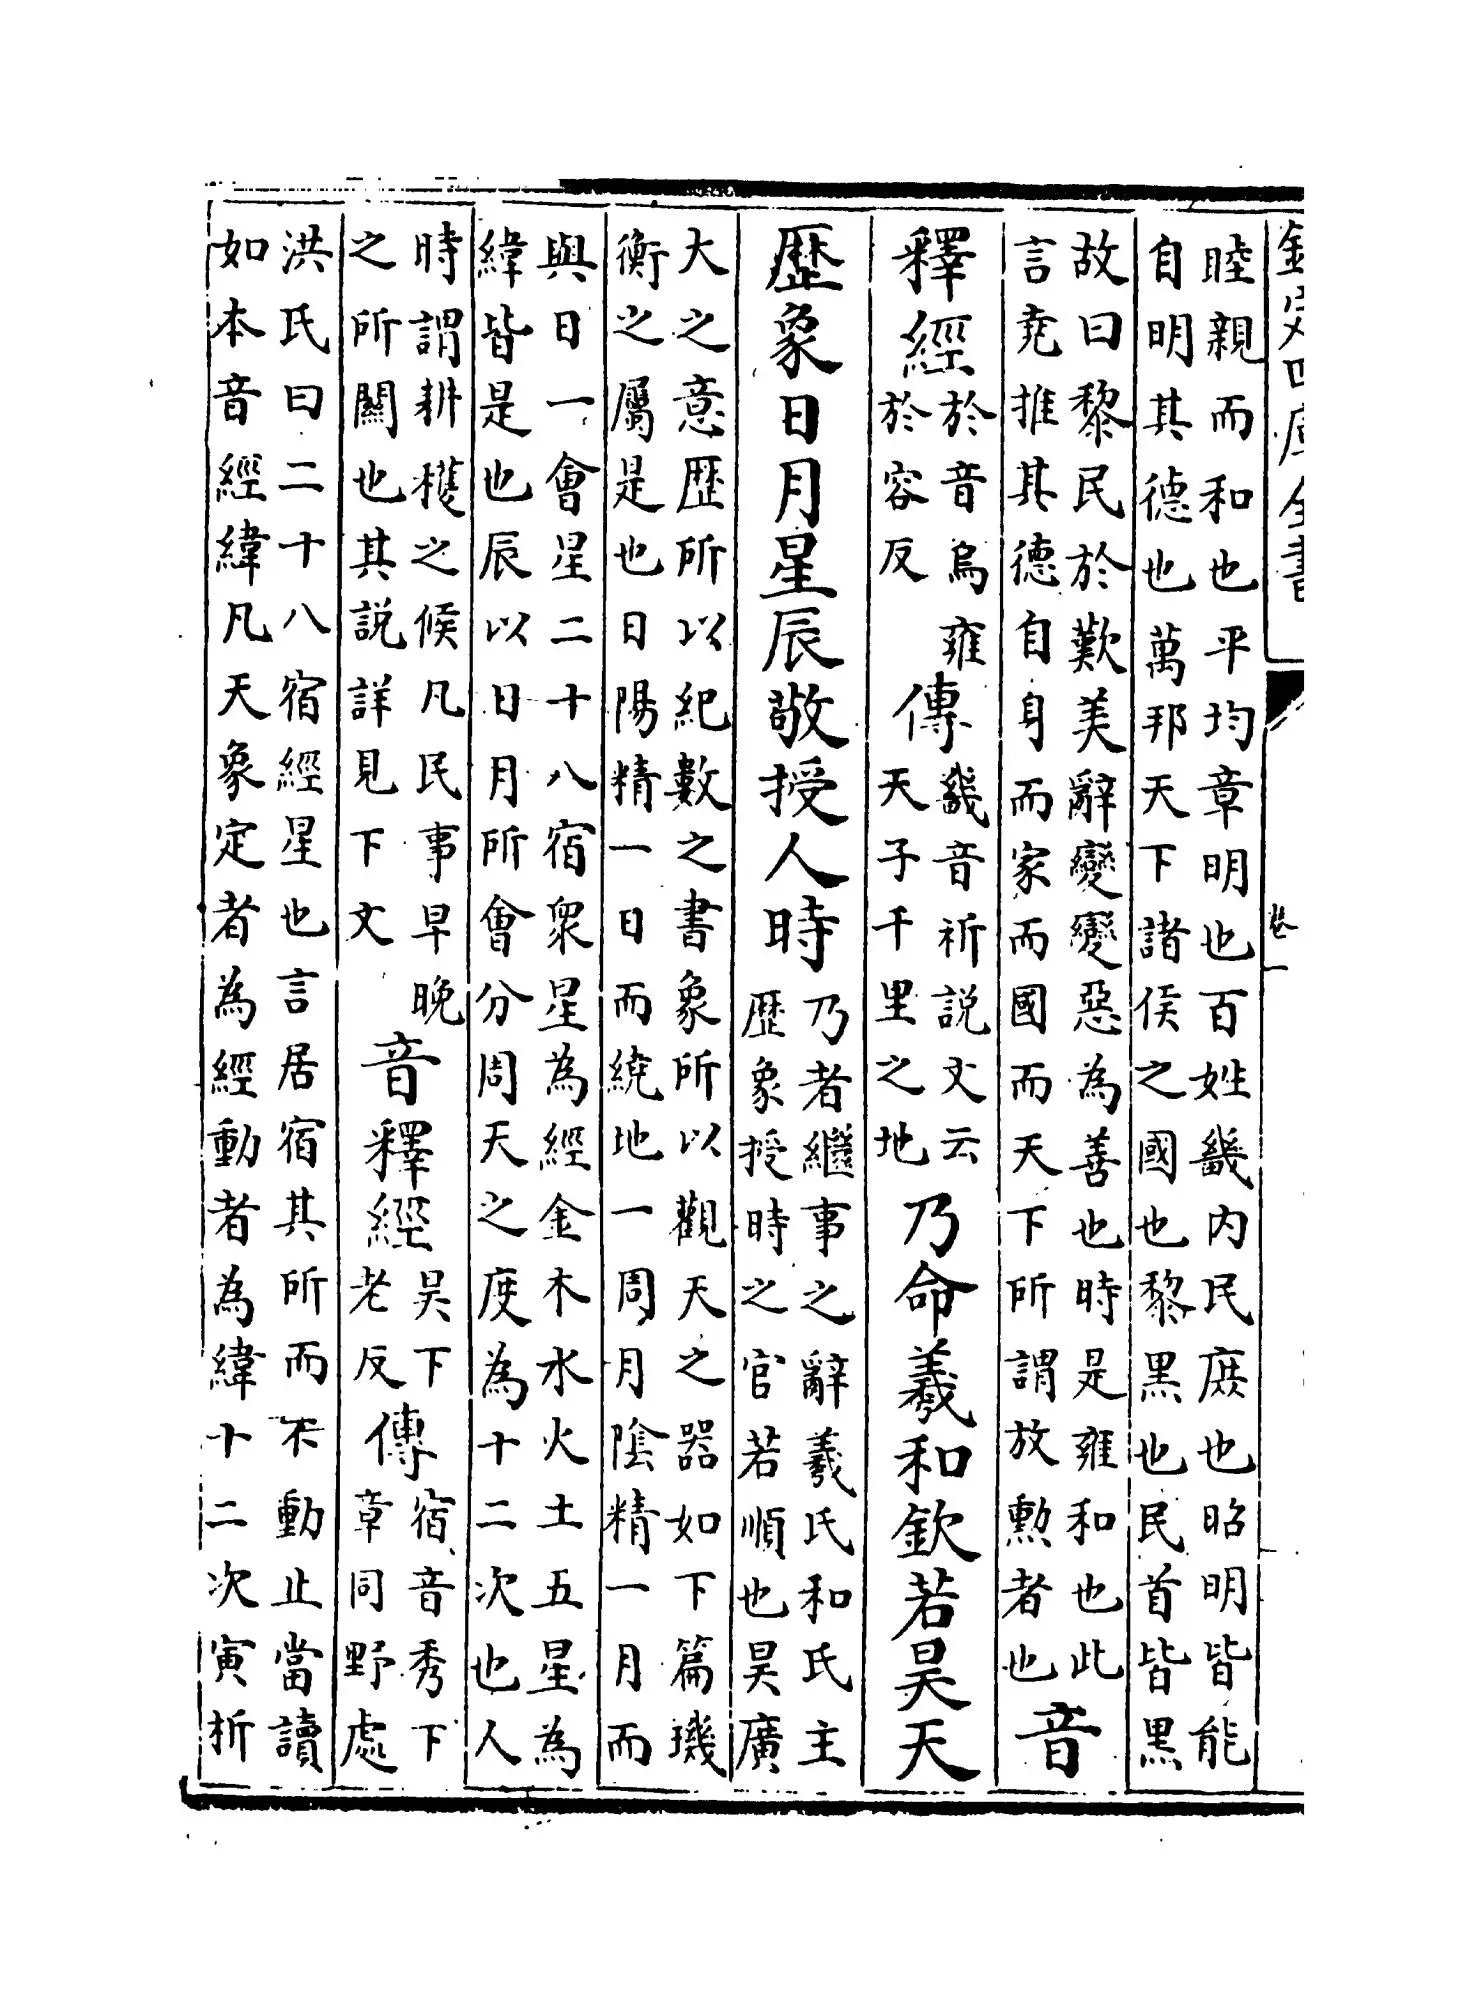 欽定四庫全書
卷一
睦親而和也平均章明也百姓畿内民庶也昭明皆能
自明其德也萬邦天下諸侯之國也黎黑也民首皆黑
故曰黎民於歎美辭變變惡為善也時是雍和也此
言堯推其德自身而家而國而天下所謂放勲者也
音
釋經
於音烏雍
於容反
傳
畿音祈説文云
天子千里之地
乃命羲和欽若昊天
歴象日月星辰敬授人時
乃者繼事之辭羲氏和氏主
歴象授時之官若順也昊廣
大之意歴所以紀數之書象所以觀天之器如下篇璣
衡之屬是也日陽精一日而繞地一周月陰精一月而
與日一會星二十八宿衆星為經金木水火土五星為
緯皆是也辰以日月所會分周天之度為十二次也人
時謂耕穫之候凡民事早晚
之所關也其説詳見下文
音釋經
昊下
老反
傳
宿音秀下
章同野處
洪氏曰二十八宿經星也言居宿其所而不動止當讀
如本音經緯凡天象定者為經動者為緯十二次寅析